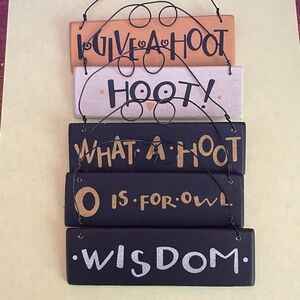 I·GIVE·A·HOOT
HOOT!
WHAT·A·HOOT
O IS·FOR·OWL
·WISDOM·